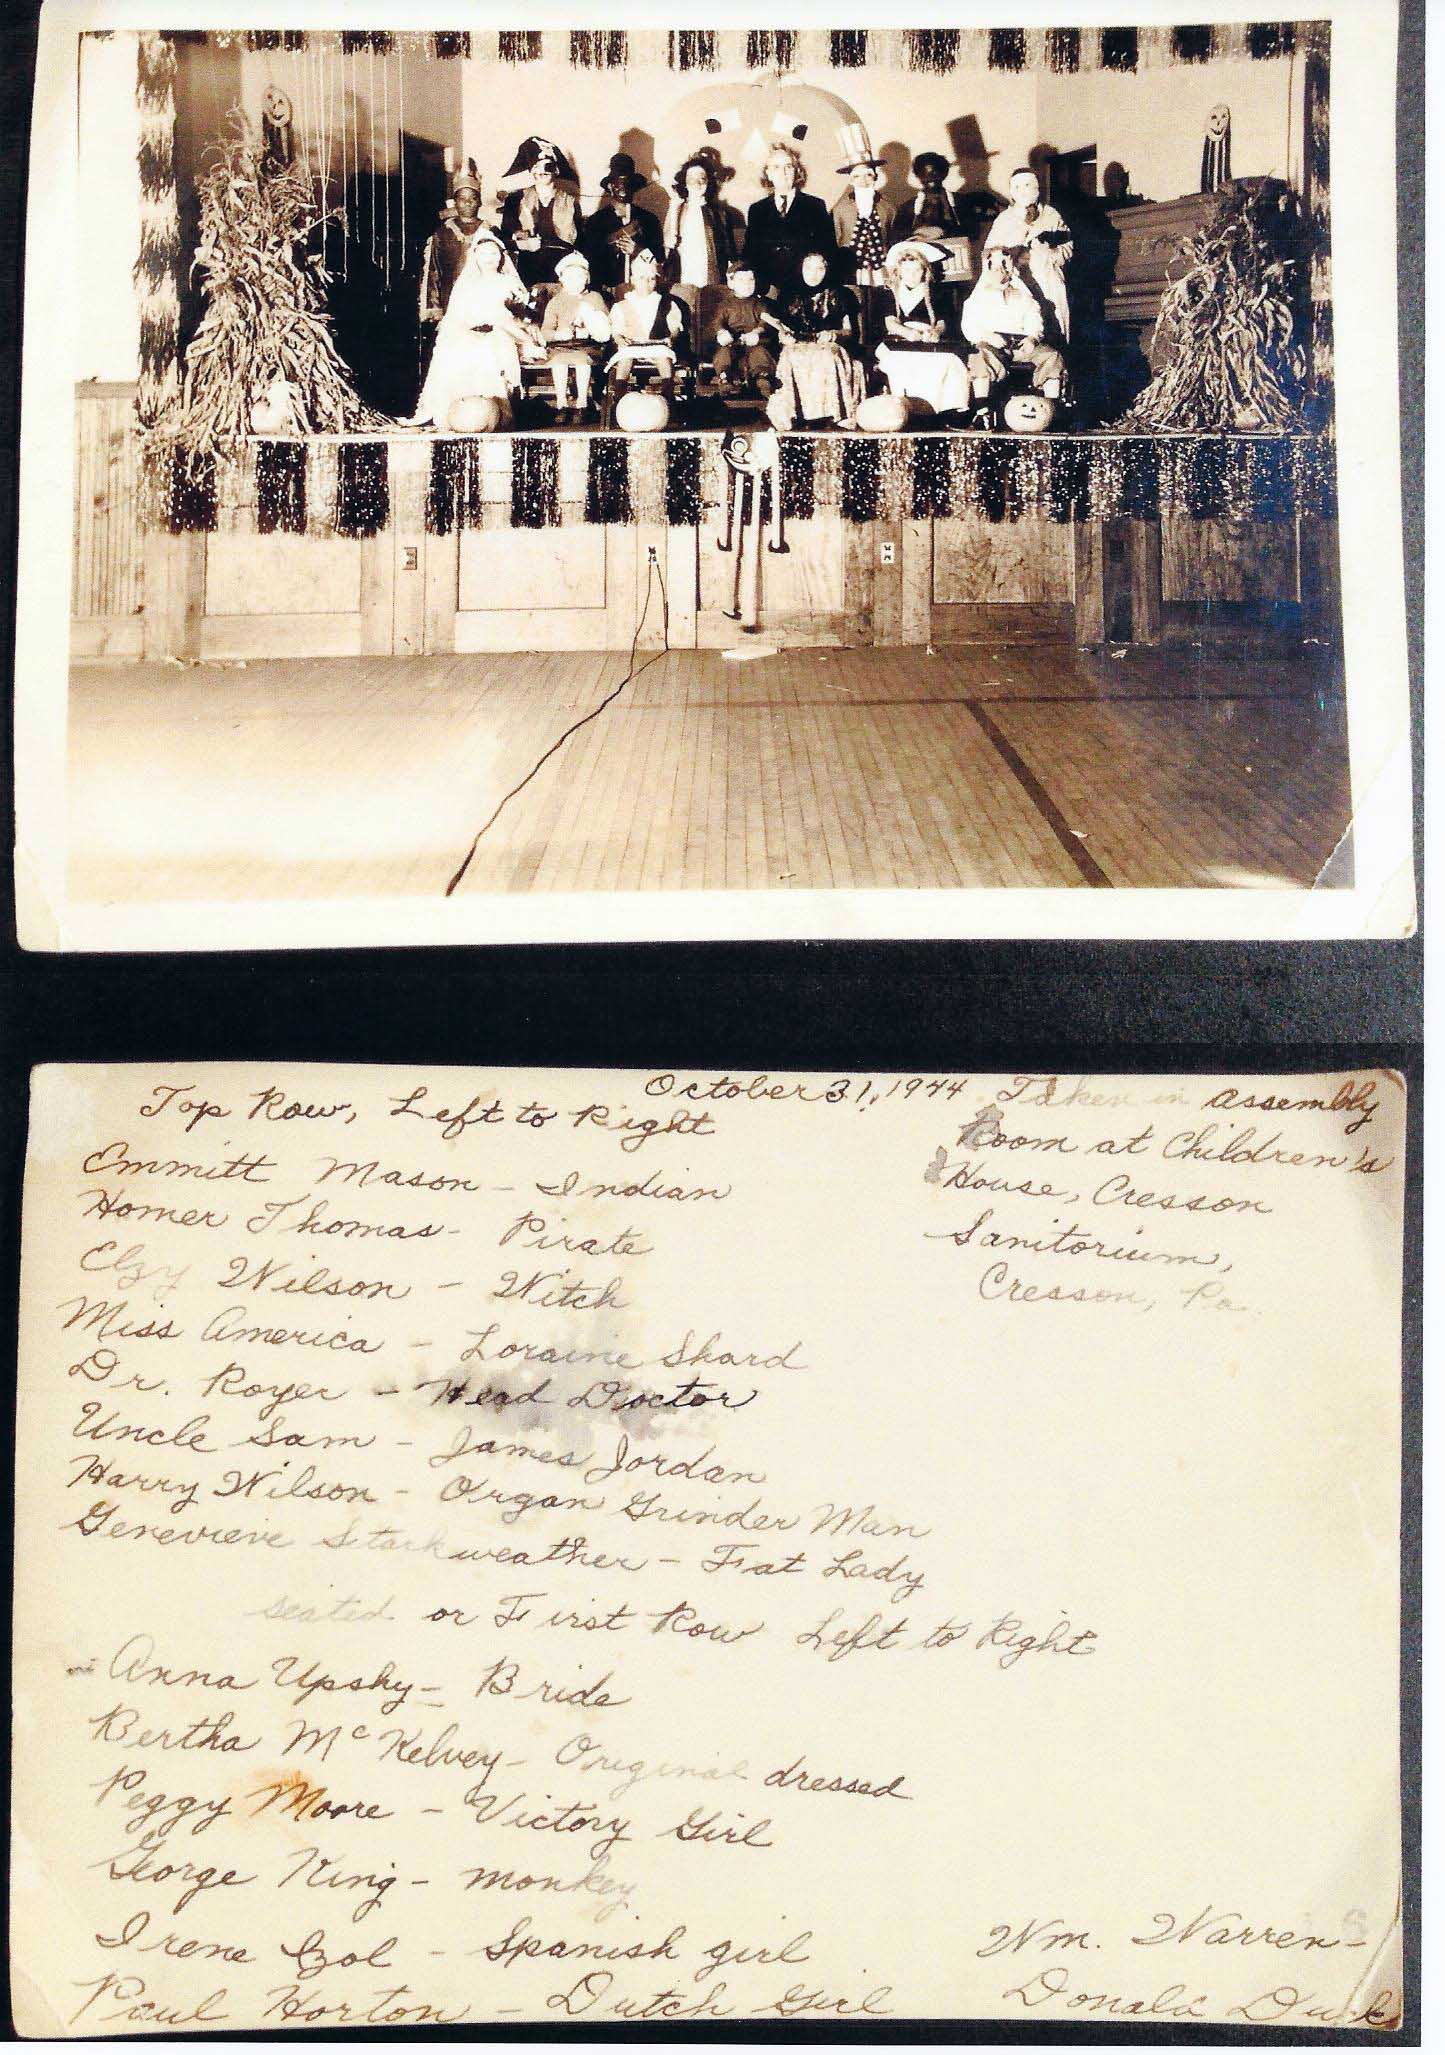 October 31, 1944 Taken in assembly
Room at Children's
House, Cresson
Sanitorium,
Cresson, Pa.
Top Row, Left to Right
Emmitt Mason - Indian
Homer Thomas - Pirate
Elzy Wilson - Witch
Miss America - Loraine Shard
Dr. Royer - Head Doctor
Uncle Sam - James Jordan
Harry Wilson - Organ Grinder Man
Genevieve Starkweather - Fat Lady
seated or First Row Left to Right
Anna Upshy - Bride
Bertha McKelvey - Original dressed
Peggy Moore - Victory Girl
George King - monkey
Irene - Spanish girl
Paul Horton - Dutch Girl
Wm. Warren -
Donald Duck